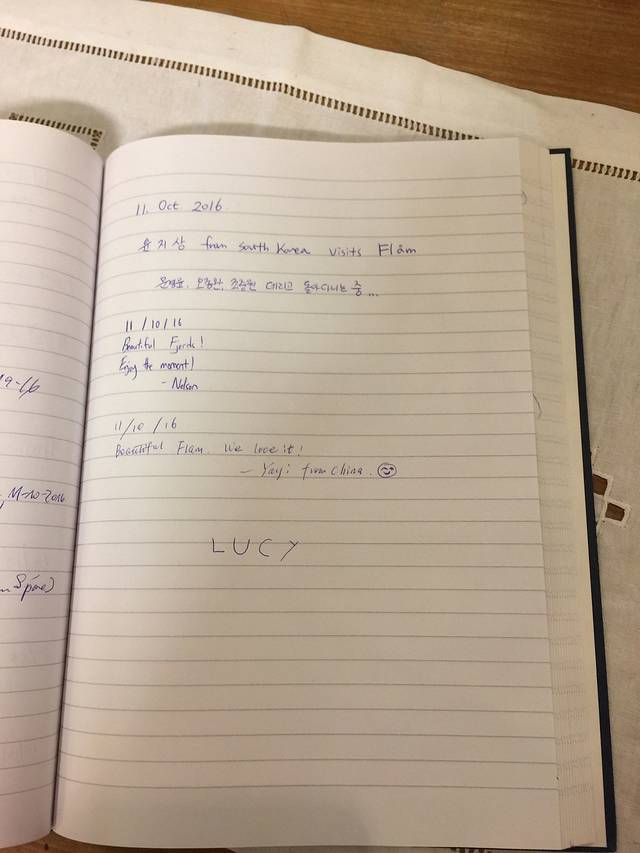 19-16
M-10-2016
Spine)
11. Oct 2016
윤지상 from South Korea visits Flåm
데리고 돌아다니는 중...
11/10/16
Beautiful Fjords!
Enjoy the moment!
- Nelson
11/10/16
Beautiful Flam. We love it!
- Yayi from China.
LUCY